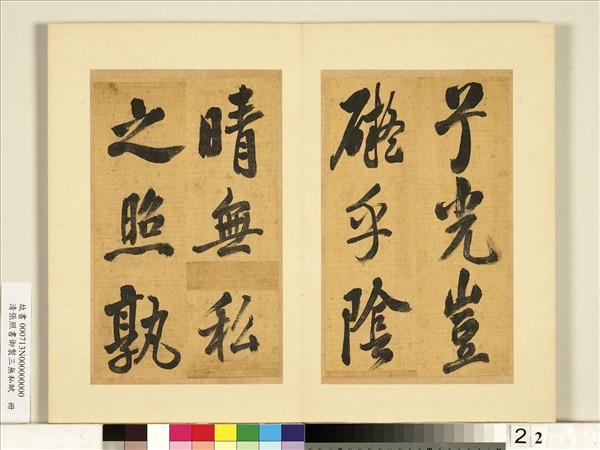 光豈
礙乎陰
晴無私
之照孰
故書 000713N000000000
清張照書御製三無私賦 冊
2 2